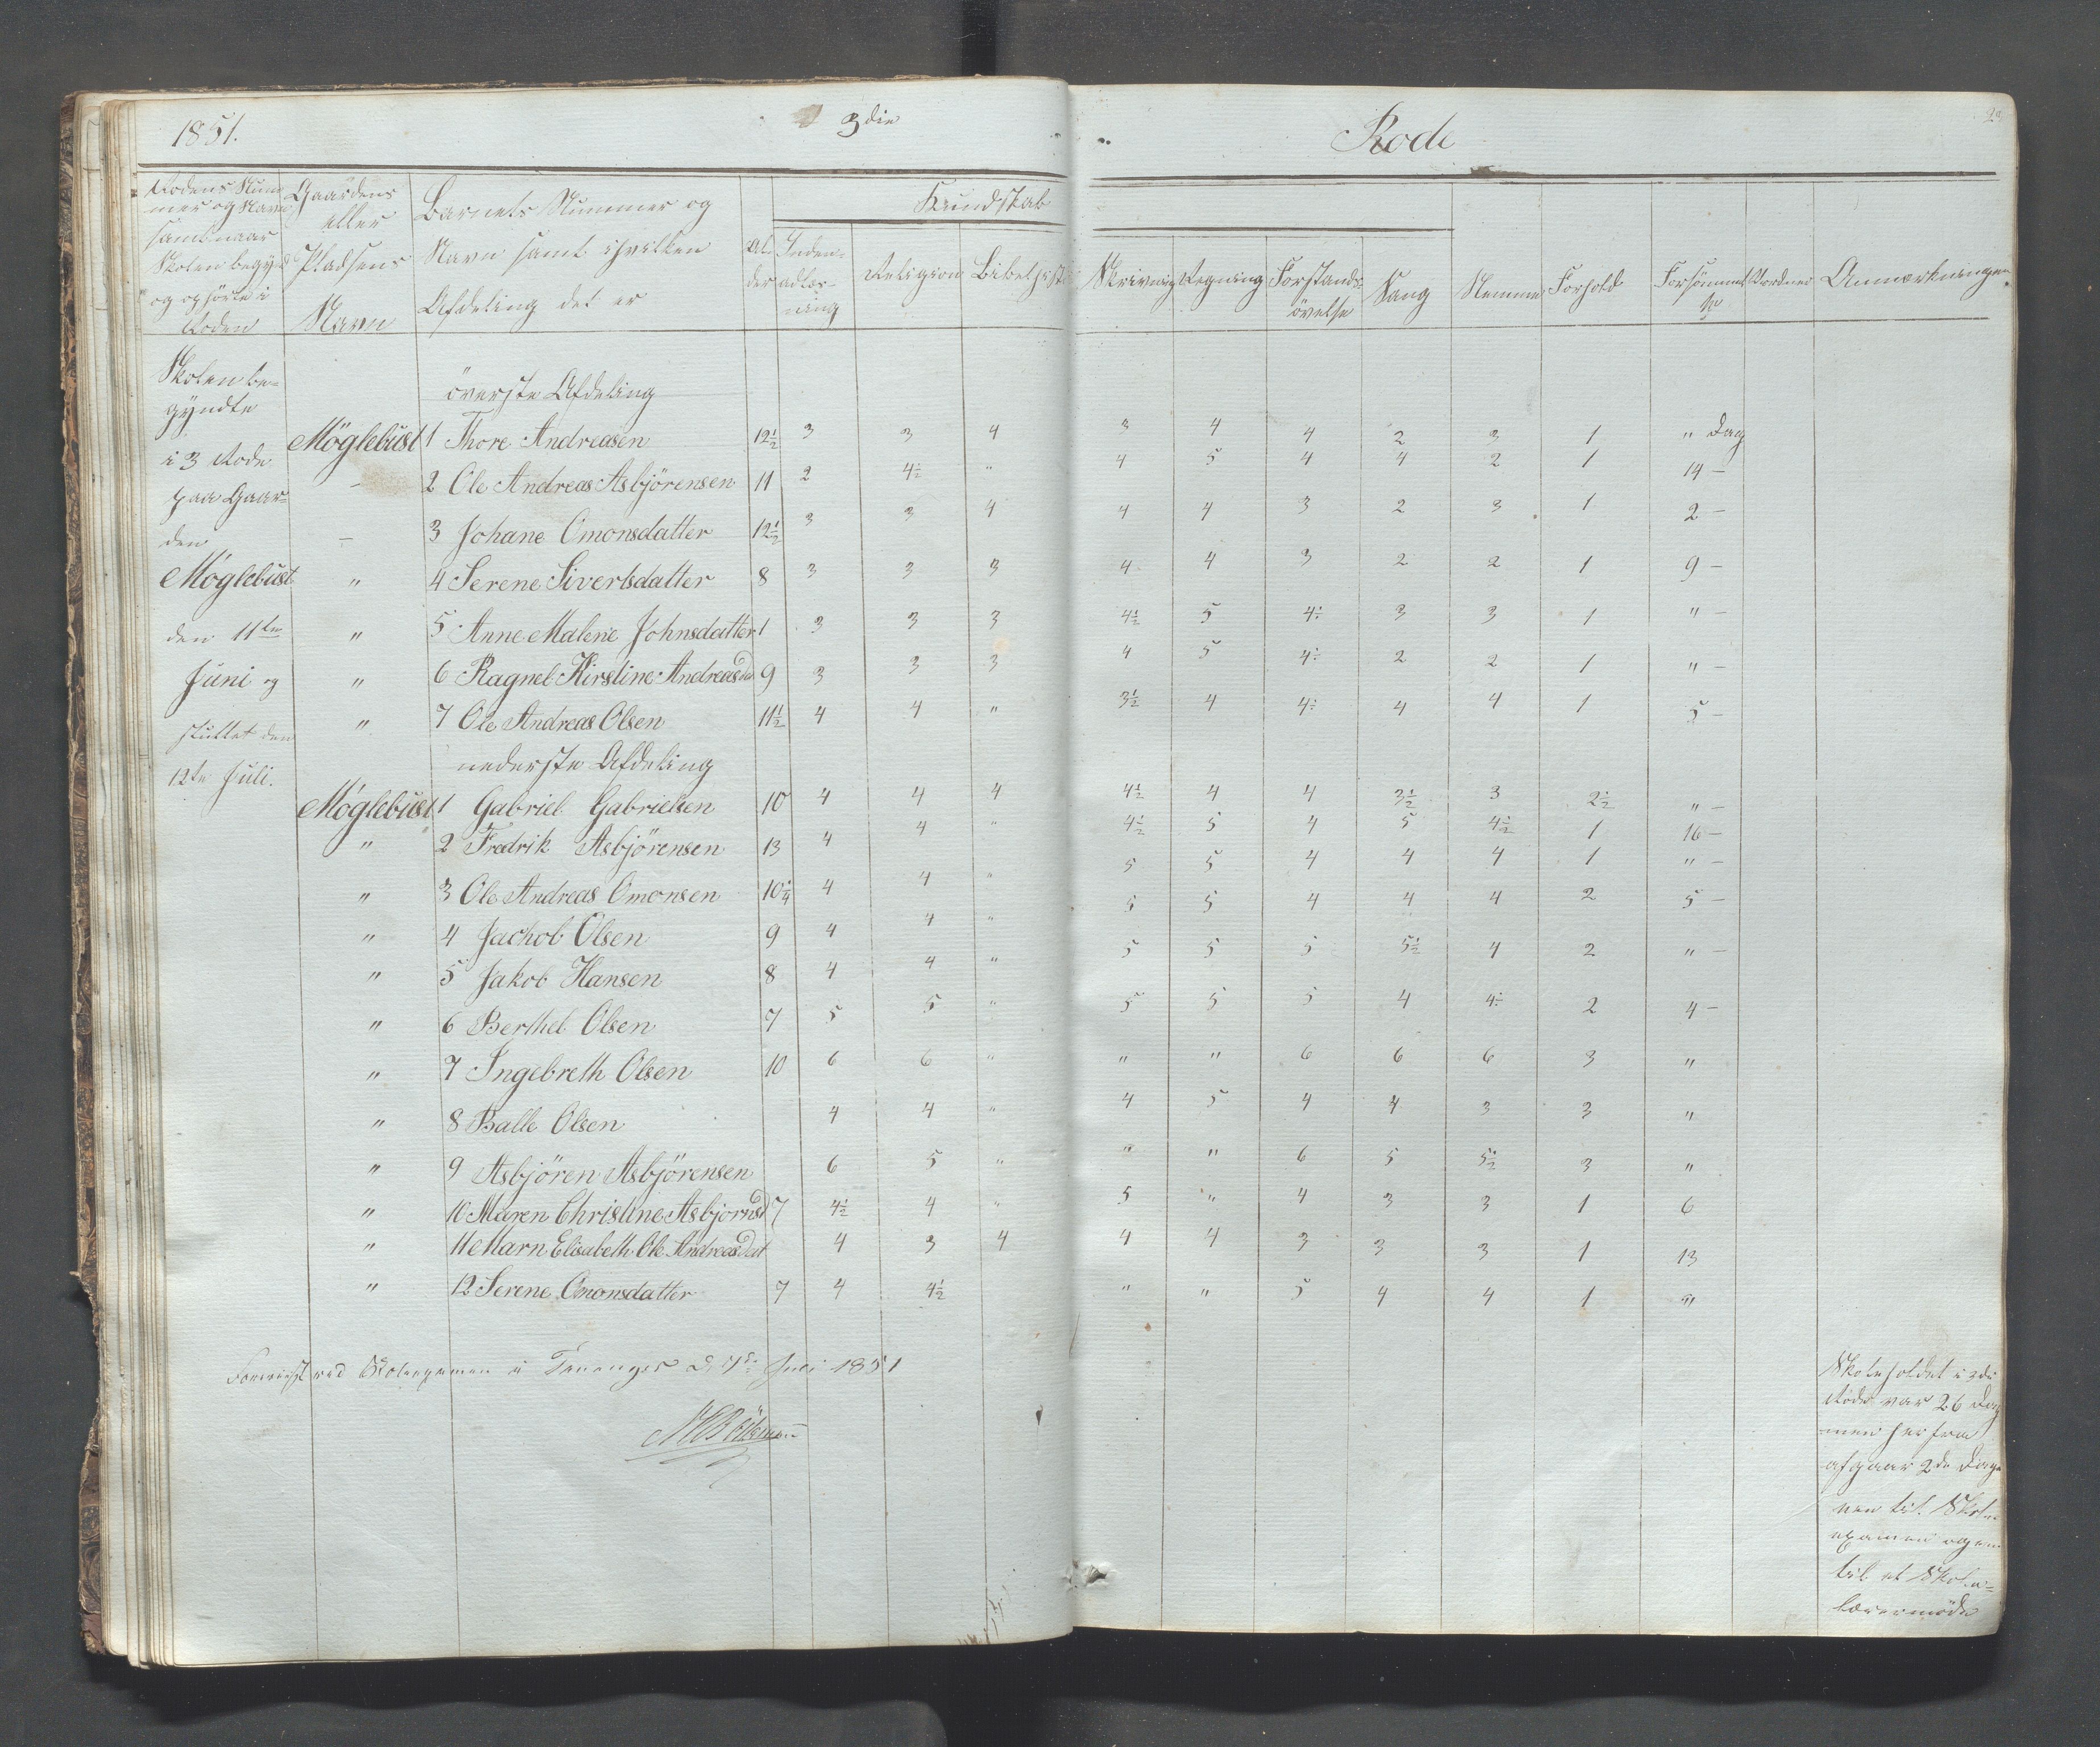 1851.
3die
Rode
29
Rodens Num
mer og Navn
samt naar
Skolen begynd
og ophörte i
Roden
Gaardens
eller
Pladsens
Navn
Barnets Nummer og
Navn samt i hvilken
Afdeling det er
Al
der
Inden-
adlæs-
ning
Kundskab
Religion
Bibelhist
Skrivning
Regning
Forstands-
övelse
Sang
Nemme
Forhold
Forsömmel
se
Anmærkninger
Skolen be-
gyndte
i 3 Rode
paa Gaar-
den
Møglebust
den 11te
Juni og
sluttet den
12te Juli.
överste Afdeling
Möglebust 1 Thore Andreasen 12½ 3 3 4 3 4 4 2 3 1 " Dag
- 2 Ole Andreas Asbjörensen 11 2 4½ " 4 5 4 4 2 1 14 -
- 3 Johane Omonsdatter 12½ 3 3 4 4 4 3 2 3 1 2 -
" 4 Serene Sivertsdatter 8 3 3 3 4 4 3 2 2 1 9 -
" 5 Anne Malene Johnsdatter 1 3 3 3 4½ 5 4÷ 3 3 1 " -
" 6 Ragnel Kirstine Andreasdat 9 3 3 3 4 5 4÷ 2 2 1 " -
" 7 Ole Andreas Olsen 11½ 4 4 " 3½ 4 4÷ 4 4 1 5 -
nederste Afdeling
Möglebust 1 Gabriel Gabrielsen 10 4 4 4 4½ 4 4 3½ 3 2½ " -
" 2 Fredrik Asbjörensen 13 4 4 " 4½ 5 4 5 4½ 1 16 -
" 3 Ole Andreas Omonsen 10¼ 4 4 " 5 5 4 4 4 1 " -
" 4 Jachob Olsen 9 4 4 " 5 5 4 4 4 2 5 -
" 5 Jakob Hansen 8 4 4 " 5 5 5 5½ 4 2 " -
" 6 Berthel Olsen 7 5 5 " 5 5 5 4 4÷ 2 4 -
" 7 Ingebreth Olsen 10 6 6 " " " 6 6 6 3 "
" 8 Balle Olsen 4 4 " 4 5 4 4 3 3 "
" 9 Asbjören Asbjörensen 6 5 " " " 6 5 5½ 3 "
" 10 Maren Christine Asbjornsd 7 4½ 4 " 5 " 4 3 3 1 6
" 11 Marn Elisabeth Ole Andreasdat 4 3 4 4 4 3 3 3 1 13
" 12 Serene Omonsdatter 7 4 4½ " " 5 4 4 1 "
Foreviist ved Skoleexamen i Tananger d. Juli 1851
Skoleholdet i 3die
Rode var 26 Dag
men her fra
afgaar 2de Dage
een til Skole-
examen og een
til et Skole-
lærermöde